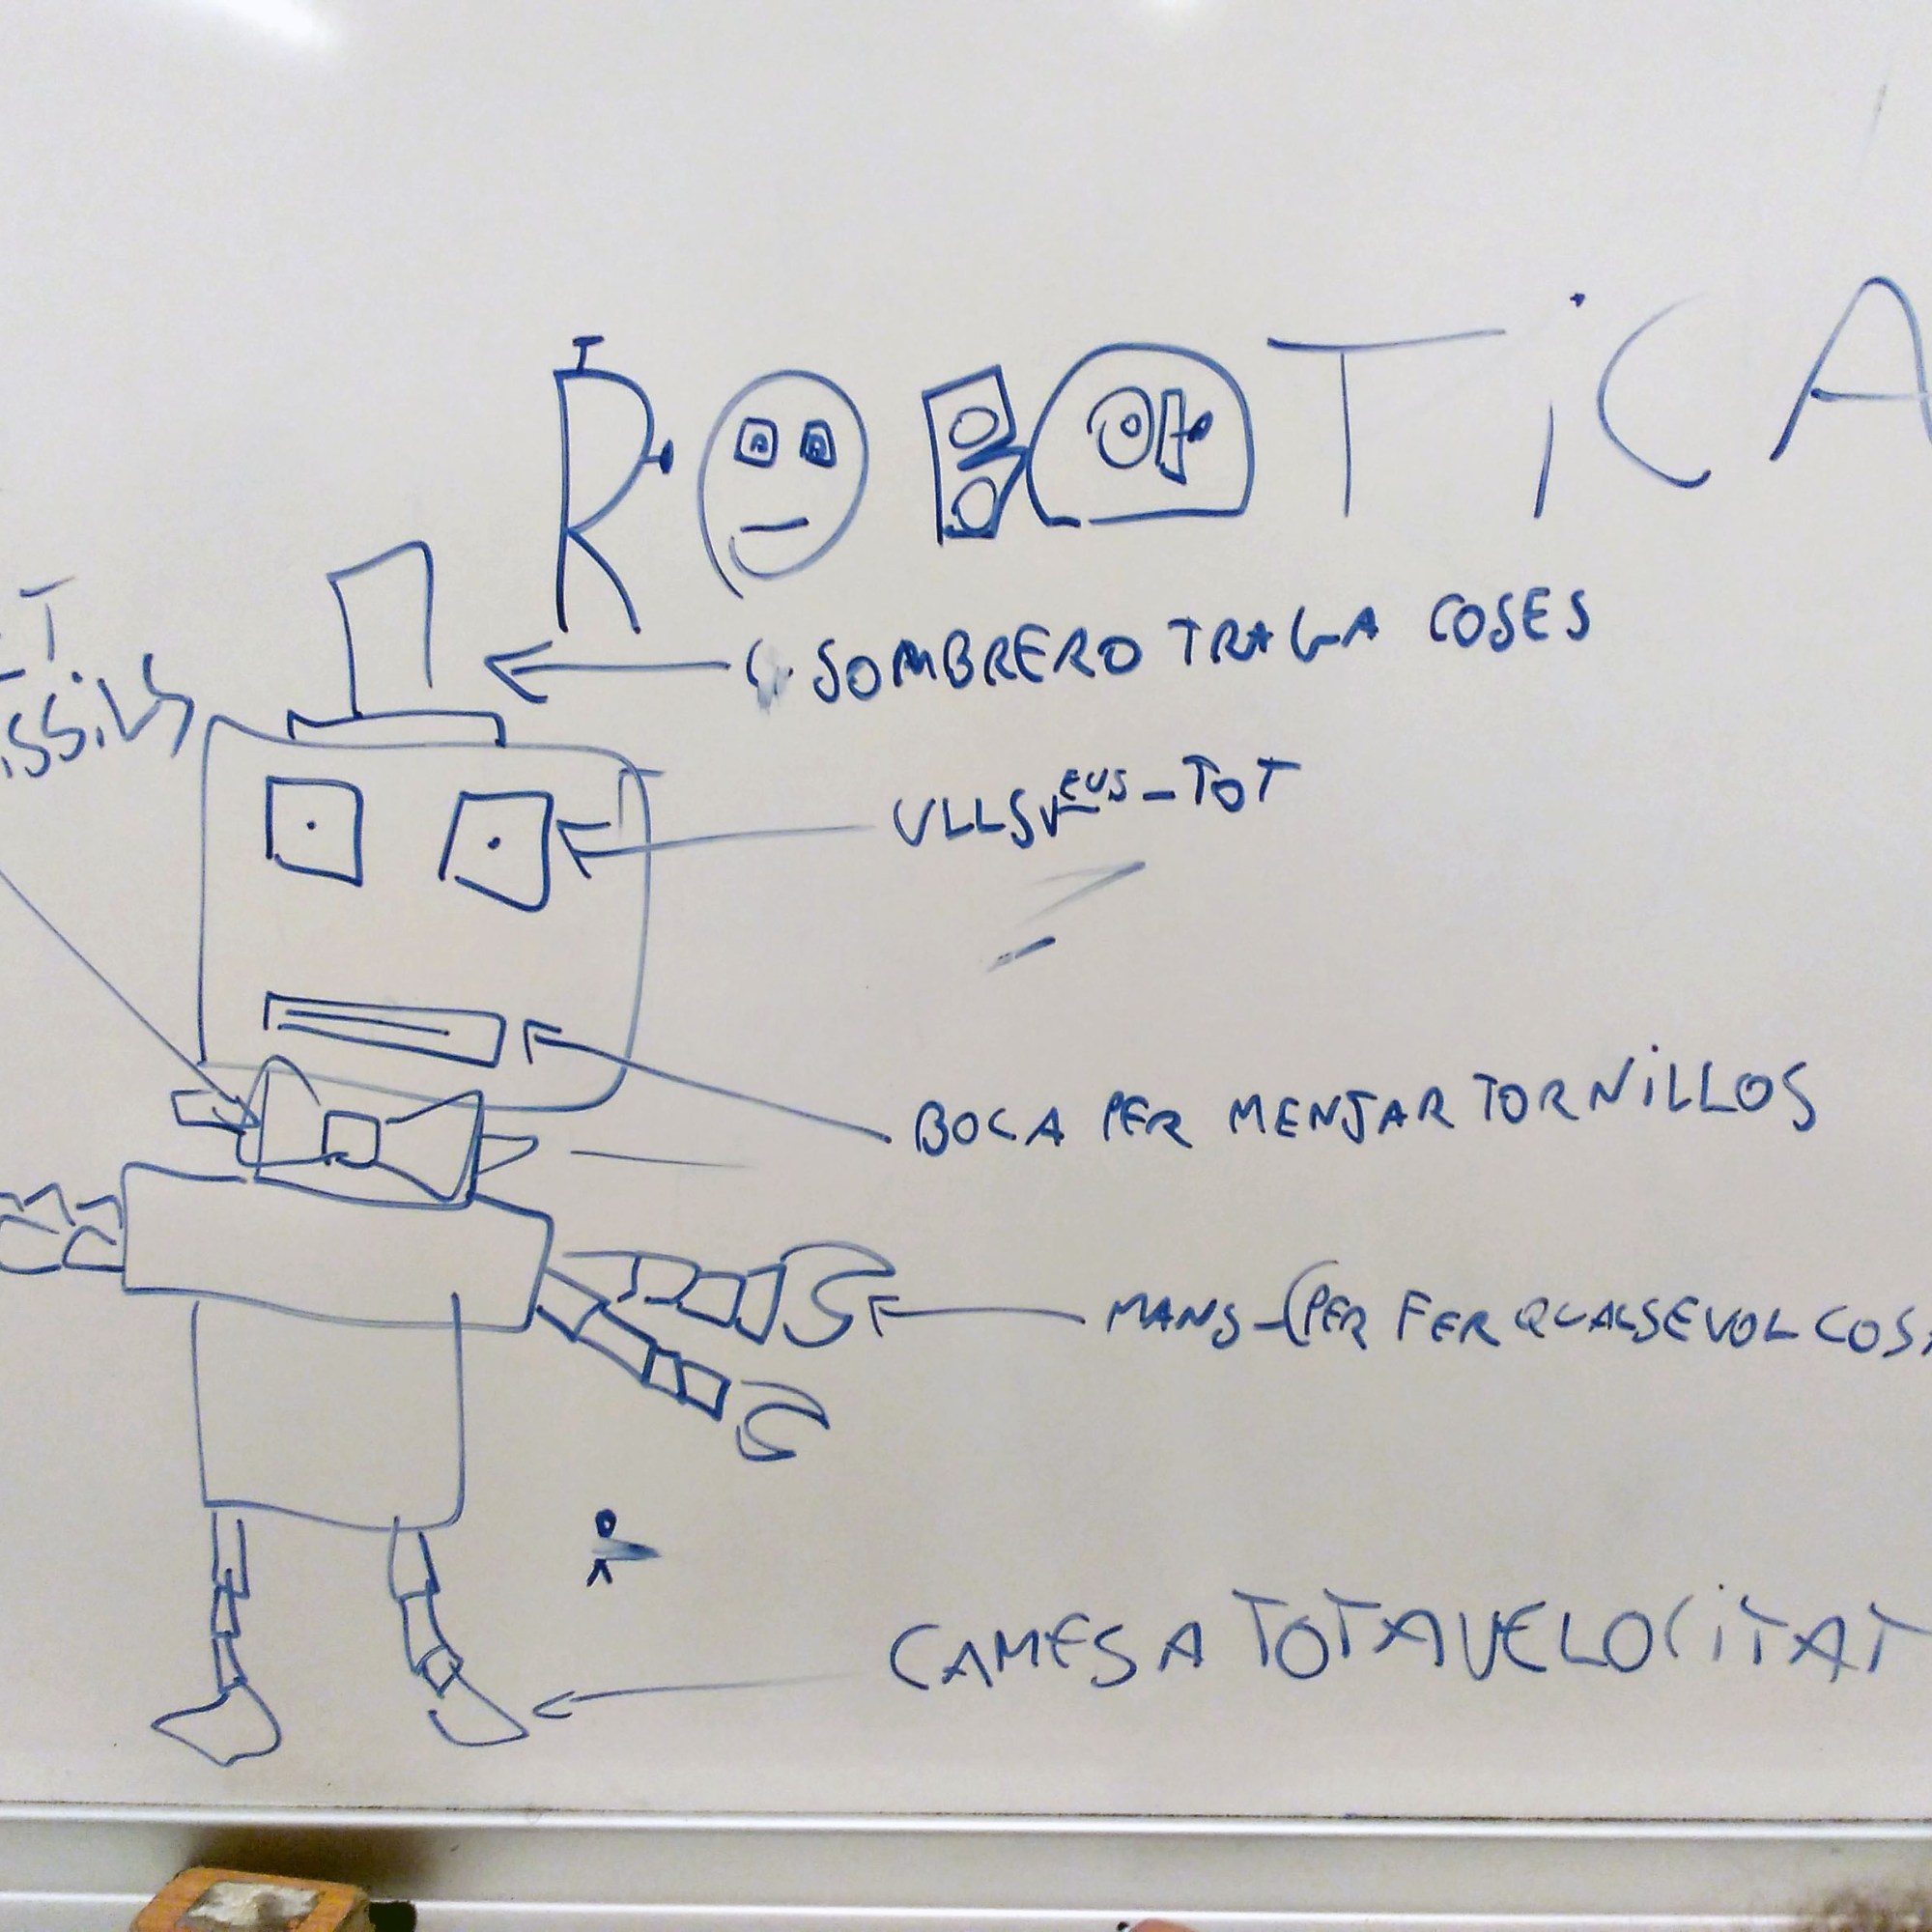 ROBOTiCA
SOMBRERO TRAGA COSES
T
ISSIUS
ULLS VEUS-TOT
BOCA PER MENJAR TORNiLLOS
MANS-(PER FER QUALSEVOL COSA
CAMES A TOTA VELOCiTAT